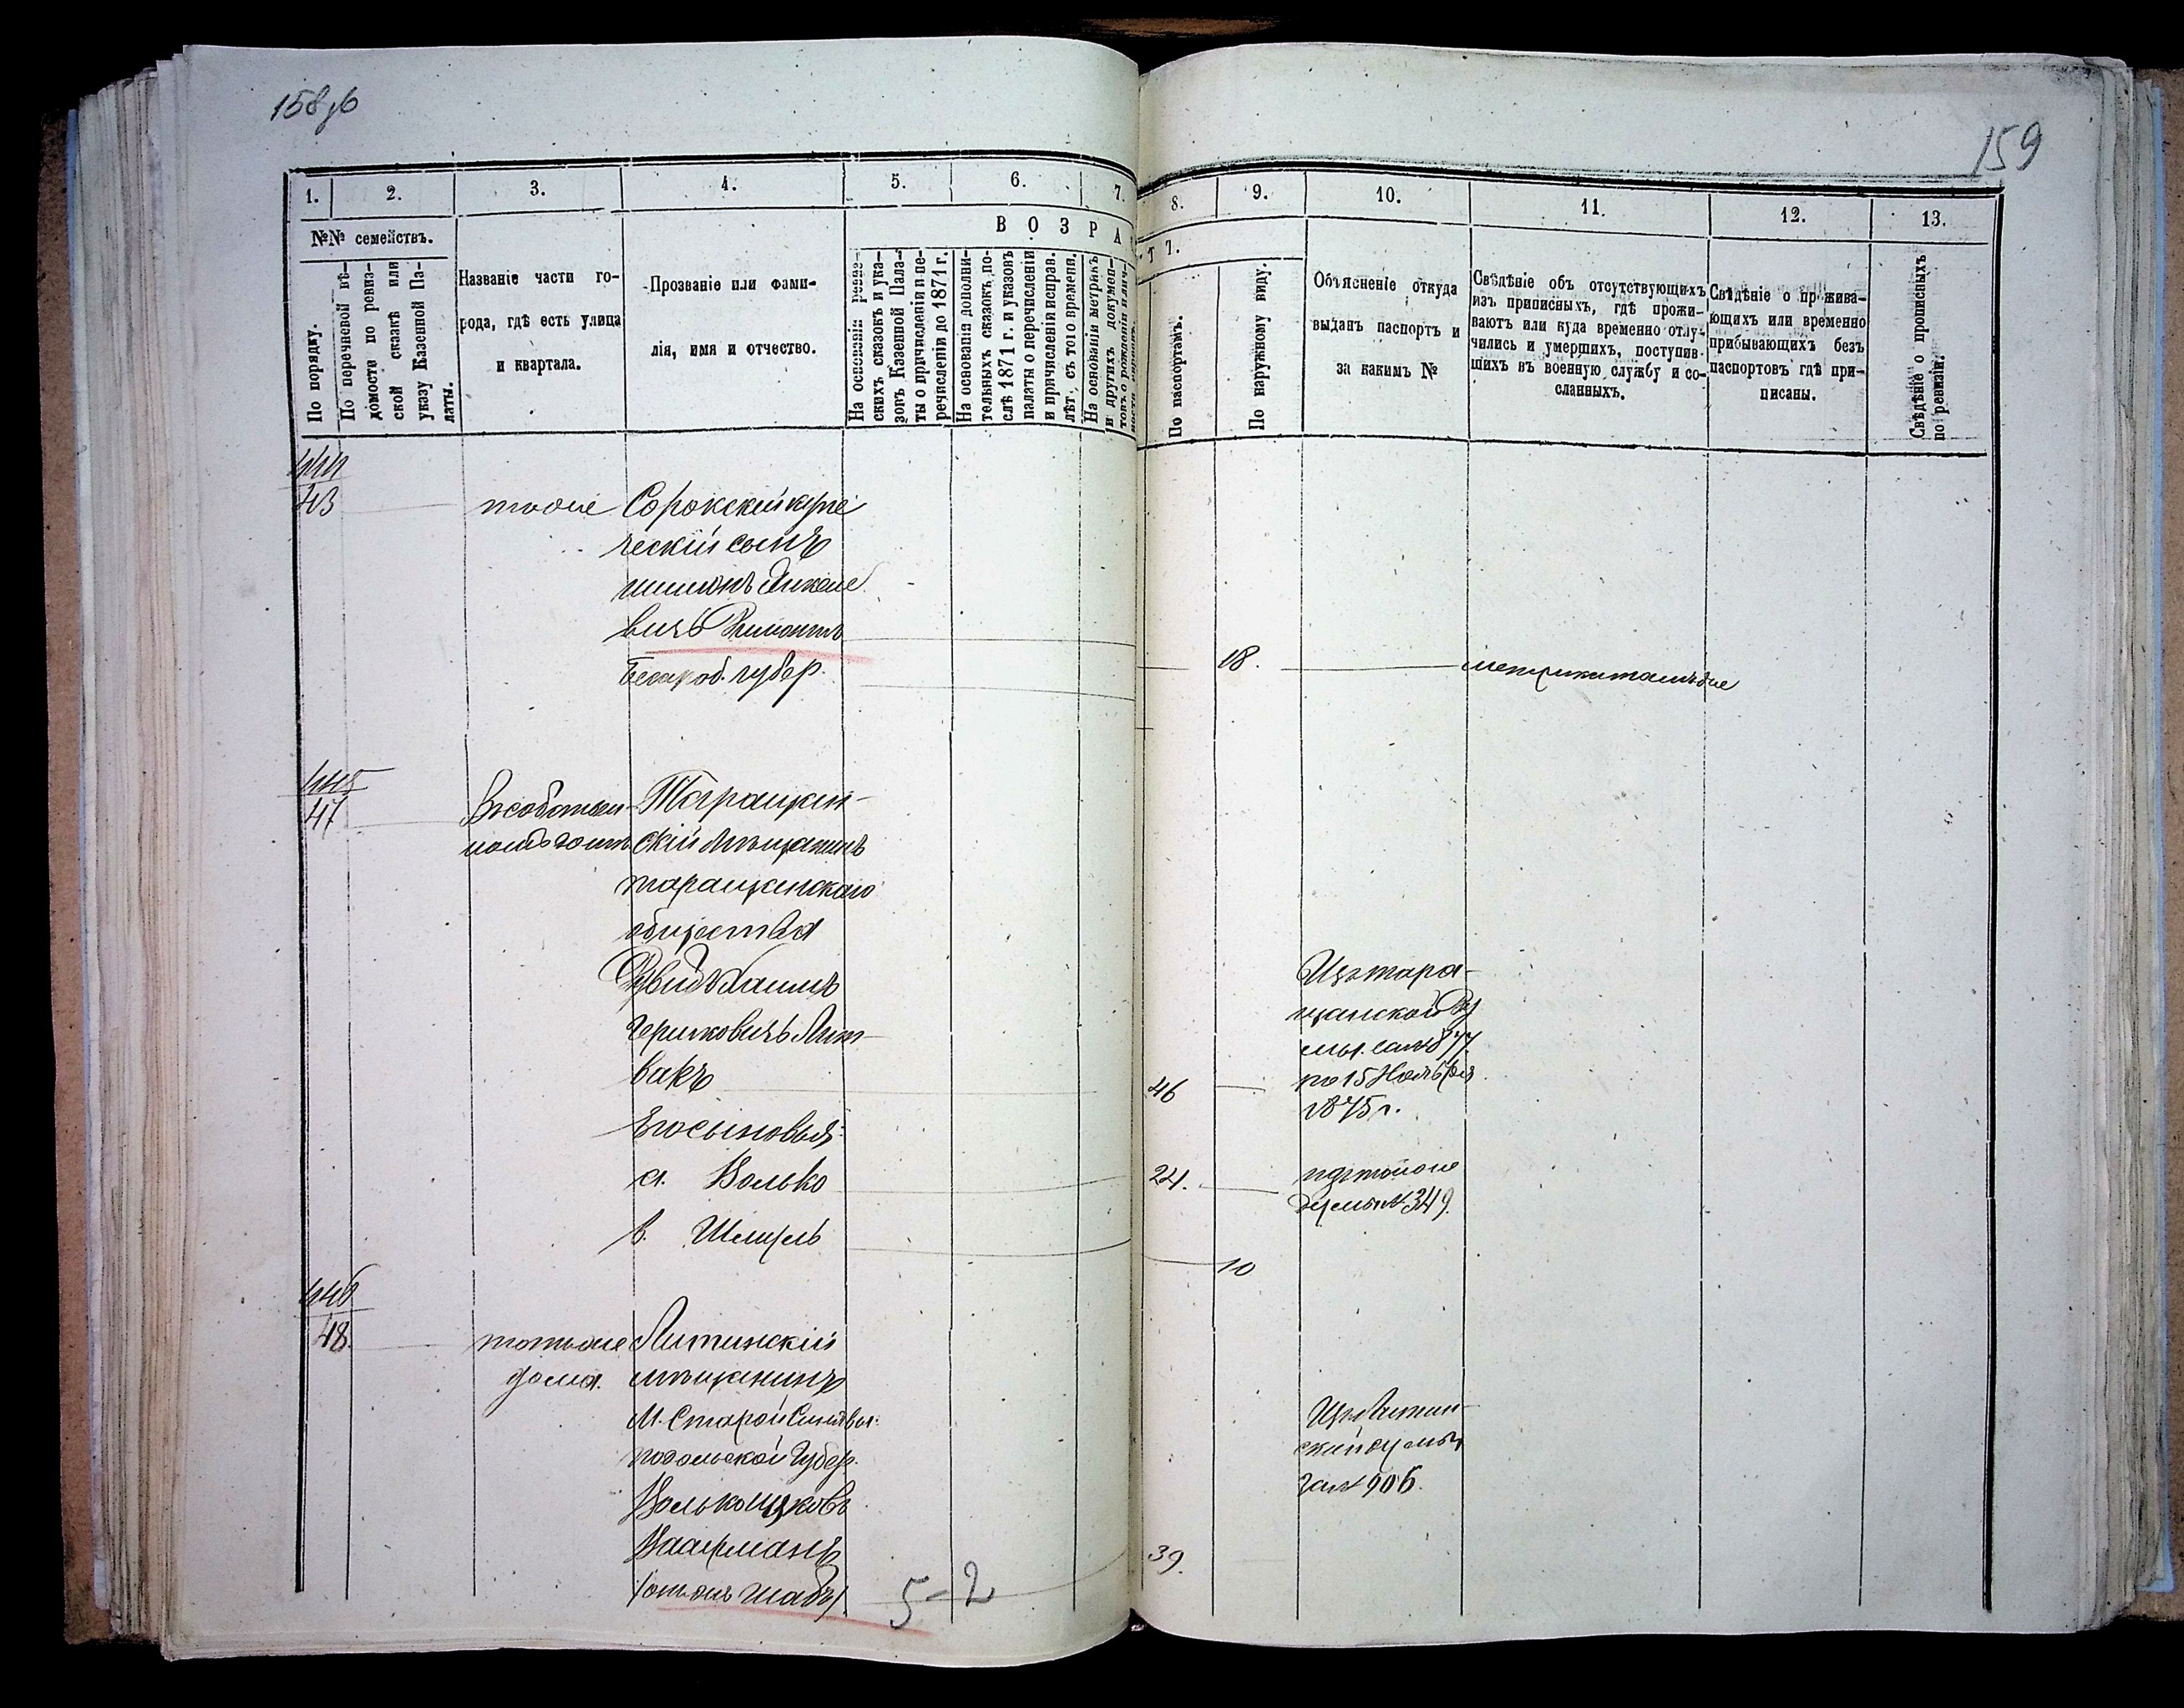 158об
159
1.
2.
3.
4.
5.
6.
7.
8.
9.
10.
11.
12.
13.
№№ семействъ.
В О З Р А
С Т Ъ.
По порядку.
По перечневой вѣ-
домости по ревиз-
ской сказкѣ или
указу Казенной Па-
латы.
Названіе части го-
рода, гдѣ есть улица
и квартала.
Прозваніе или фами-
лія, имя и отчество.
На основаніи ревиз-
скихъ сказокъ и ука-
зовъ Казенной Пала-
ты о причисленіи и пе-
речисленіи до 1871 г.
На основаніи дополни-
тельныхъ сказокъ, по-
слѣ 1871 г. и указовъ
палаты о перечисленіи
и причисленіи исправ.
лѣт. съ того времени.
На основаніи метрикъ
и другихъ докумен-
товъ о рожденіи
По паспортамъ.
По наружному виду.
Объясненіе откуда
выданъ паспортъ и
за какимъ №
Свѣдѣніе объ отсутствующихъ
изъ приписныхъ, гдѣ прожи-
ваютъ или куда временно отлу-
чились и умершихъ, поступив-
шихъ въ военную службу и со-
сланныхъ.
Свѣдѣніе о прожива-
ющихъ или временно
прибывающихъ безъ
паспортовъ гдѣ при-
писаны.
Свѣдѣніе о прописныхъ
по ревизіи.
444
43
тоже
Сорокскій купе
ческій сынъ
Бесараб. губер.
18.
445
47
Таращан-
скій мѣщанинъ
таращанскаго
общества
Хаимъ
Гершковичъ Лит-
вакъ
46
Изъ тара-
щанской
877
по 15 Ноября
1875 г.
Его сыновья:
а. Волько
24.
изъ тойже
думы № 349.
в. Шмуль
10
446
48.
тотъже
домъ.
Литинскій
мѣщанинъ
М. Старой Синявы
подольской Губер.
Волько Ицковъ
39.
Изъ Литин-
ской думы
за № 906.
5-2